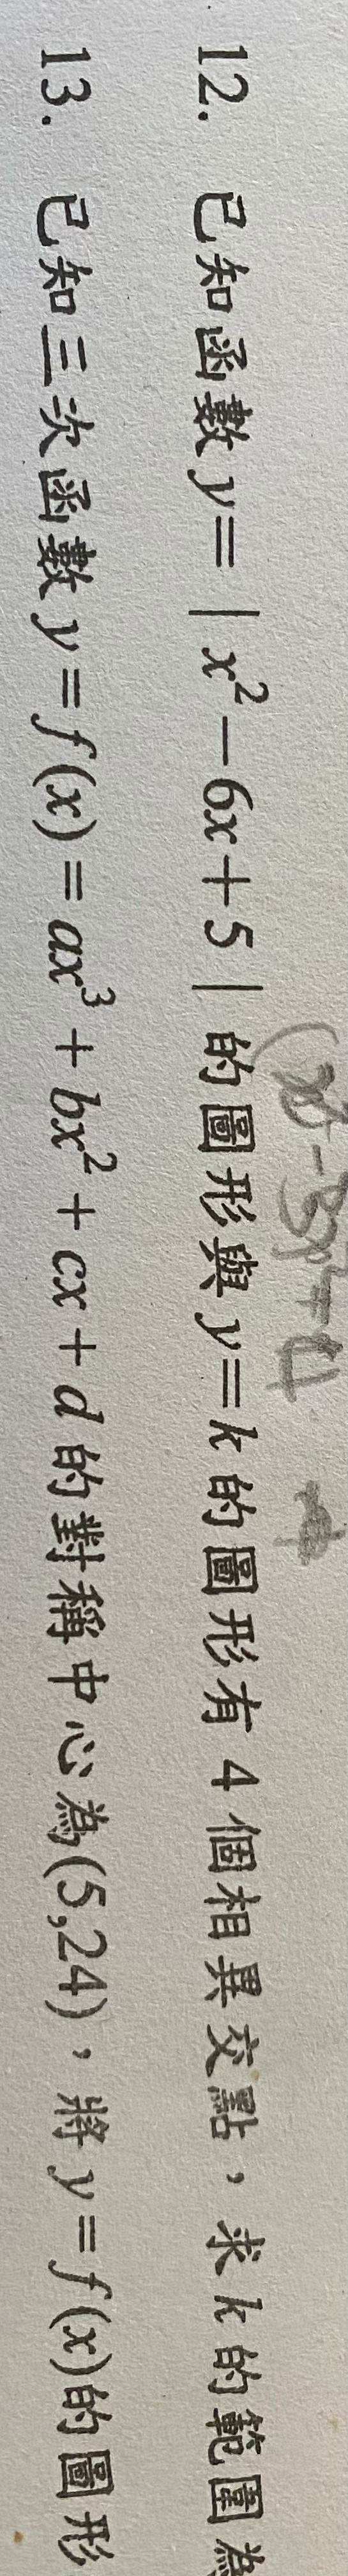 12. 已知函數 y=|x²−6x+5| 的圖形與 y=k 的圖形有 4 個相異交點，求 k 的範圍為
13. 已知三次函數 y=f(x)=ax³+bx²+cx+d 的對稱中心為(5,24)，將 y=f(x)的圖形